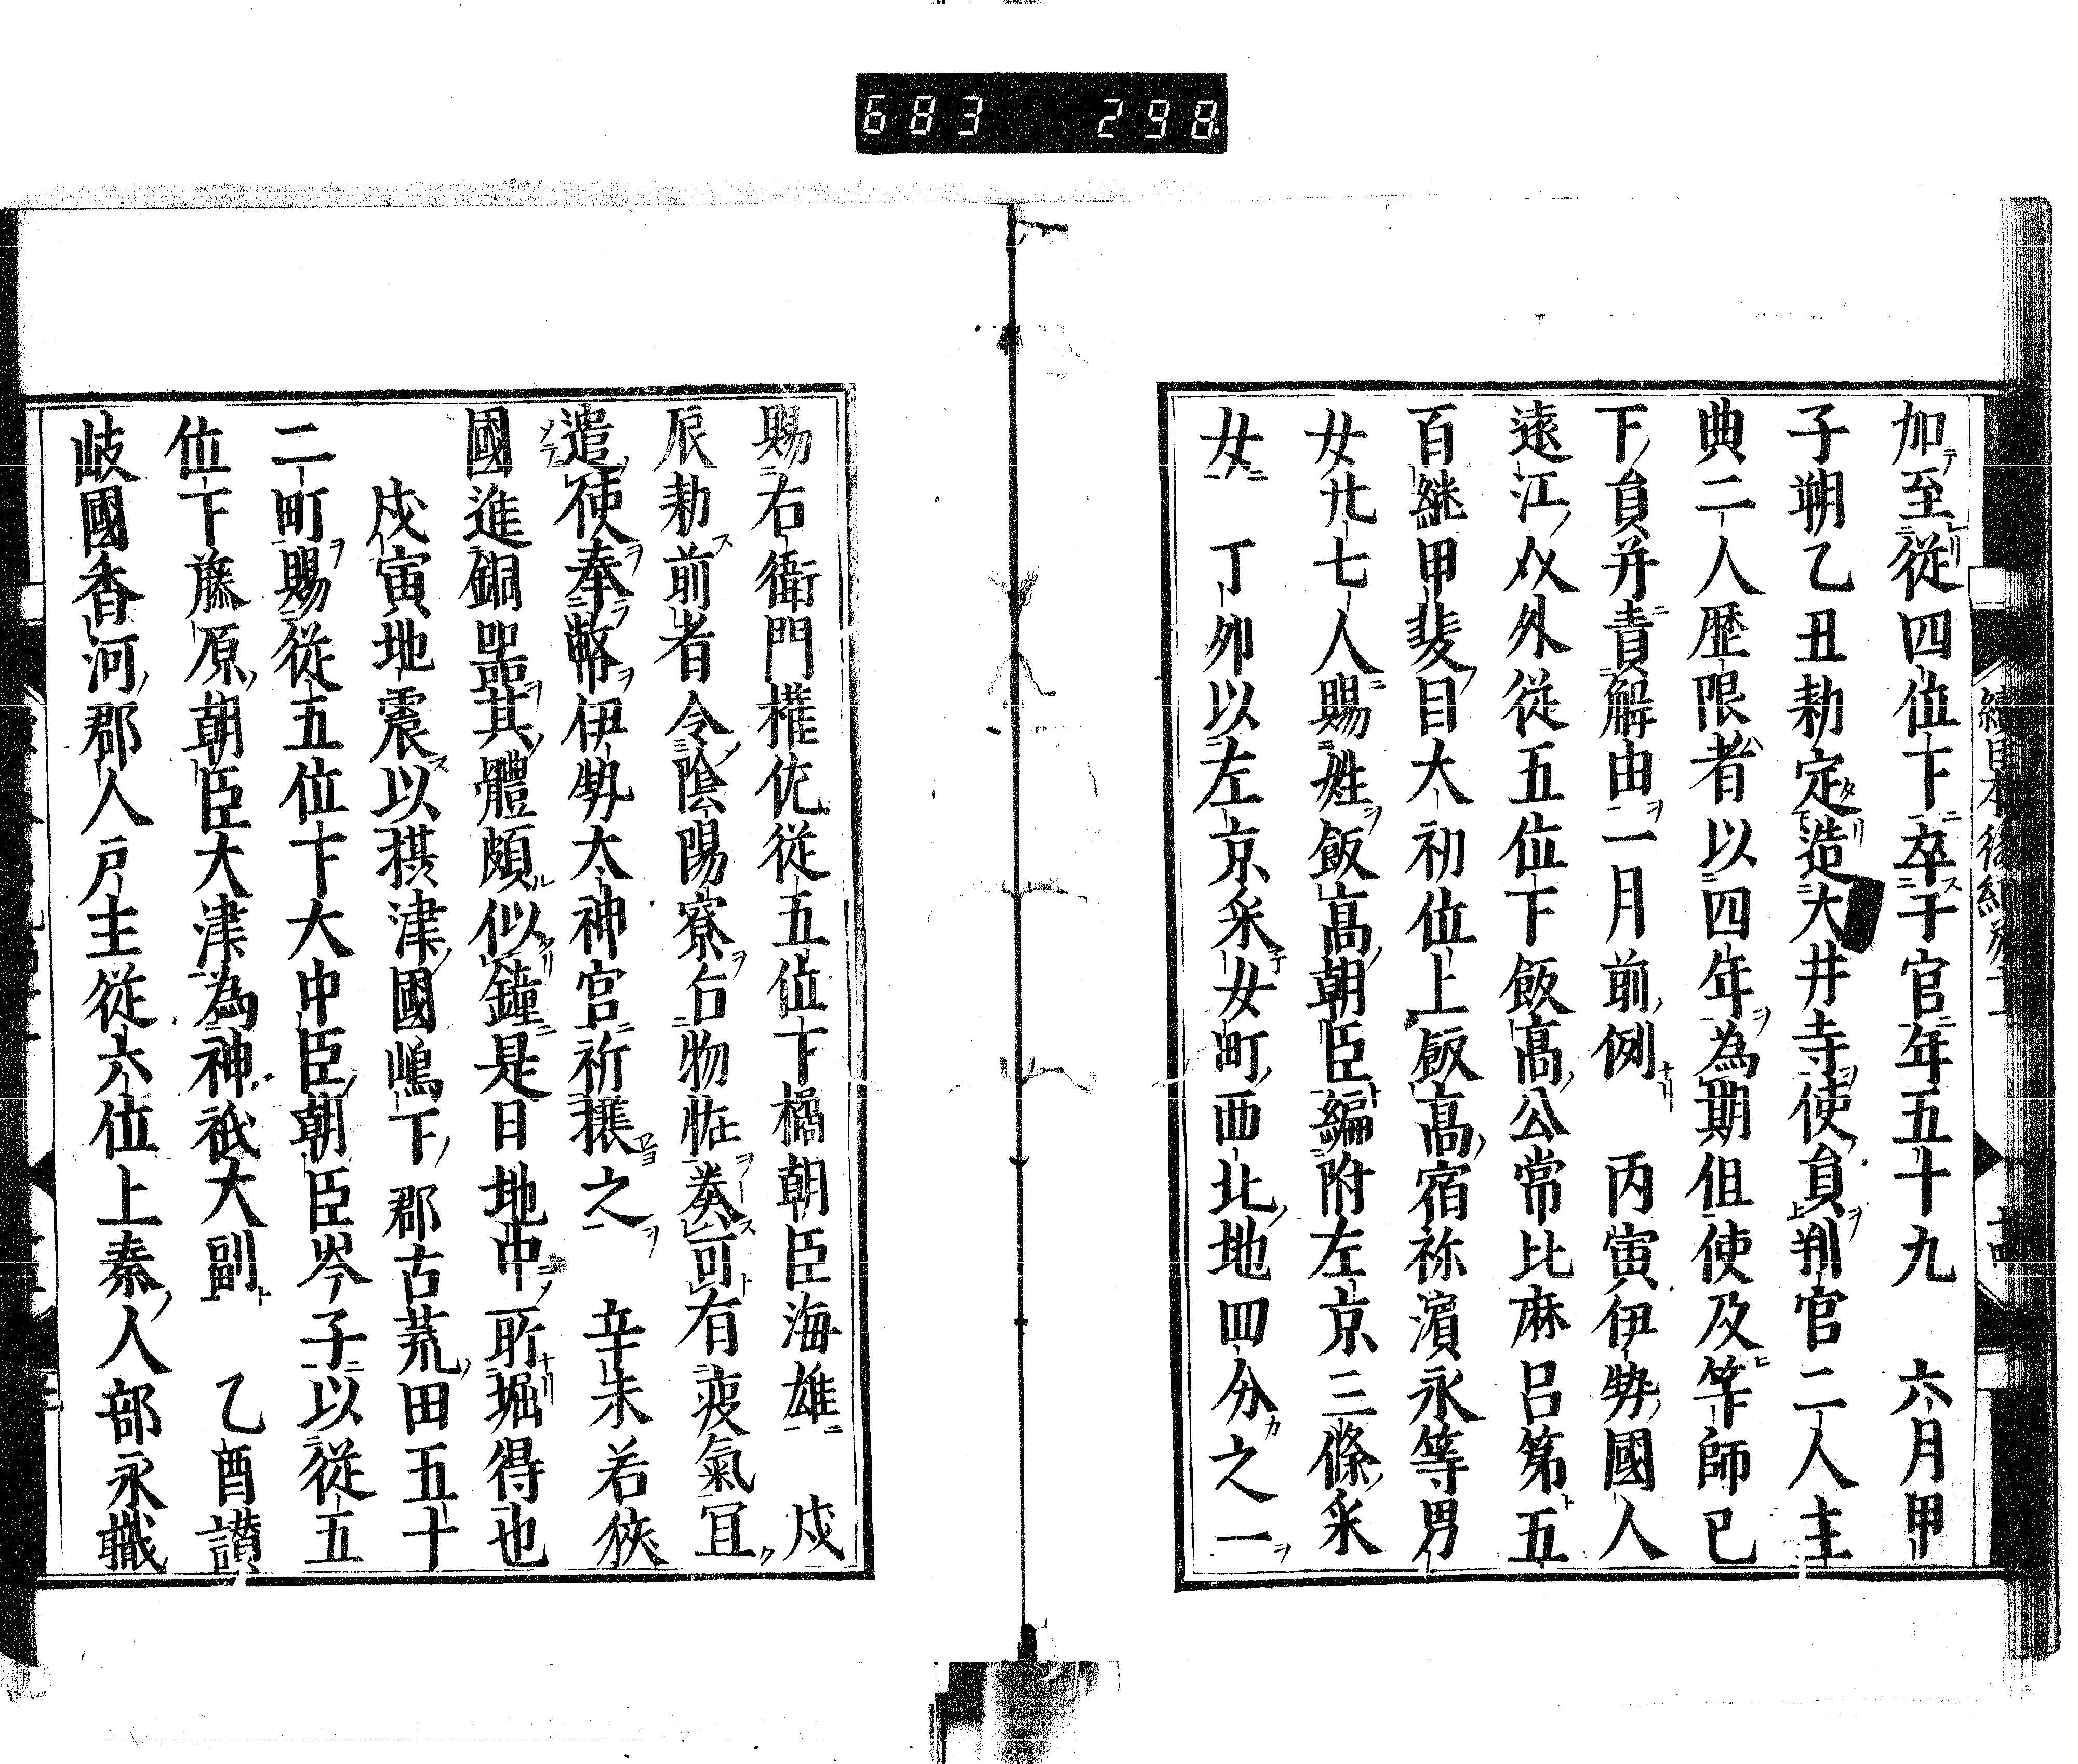 683 298
加至從四位下卒于官年五十九 六月甲
子朔乙丑勅定造大井寺使負判官二人主
典二人歷限者以四年為期但使及笇師已
下負并責解由一月前例 丙寅伊勢國人
遠江㸚外從五位下飯髙公常比麻呂第五
百継甲斐目大初位上飯髙宿祢濱永等男
女廿七人賜姓飯髙朝臣編附左京三條采
女 丁卯以左京采女町西北地四分之一
賜右衛門權佐從五位下橘朝臣海雄 戊
辰勅前者令陰陽寮占物恠奏可有疫氣冝
遣使奉幣伊勢太神宮祈攘之 辛未若狹
國進銅噐其體頗似鐘是日地中所堀得也
戊寅地震以攝津國嶋下郡古荒田五十
二町賜從五位下大中臣朝臣岑子以從五
位下藤原朝臣大津為神祇大副 乙酉讃
岐國香河郡人戶主從六位上秦人部永軄